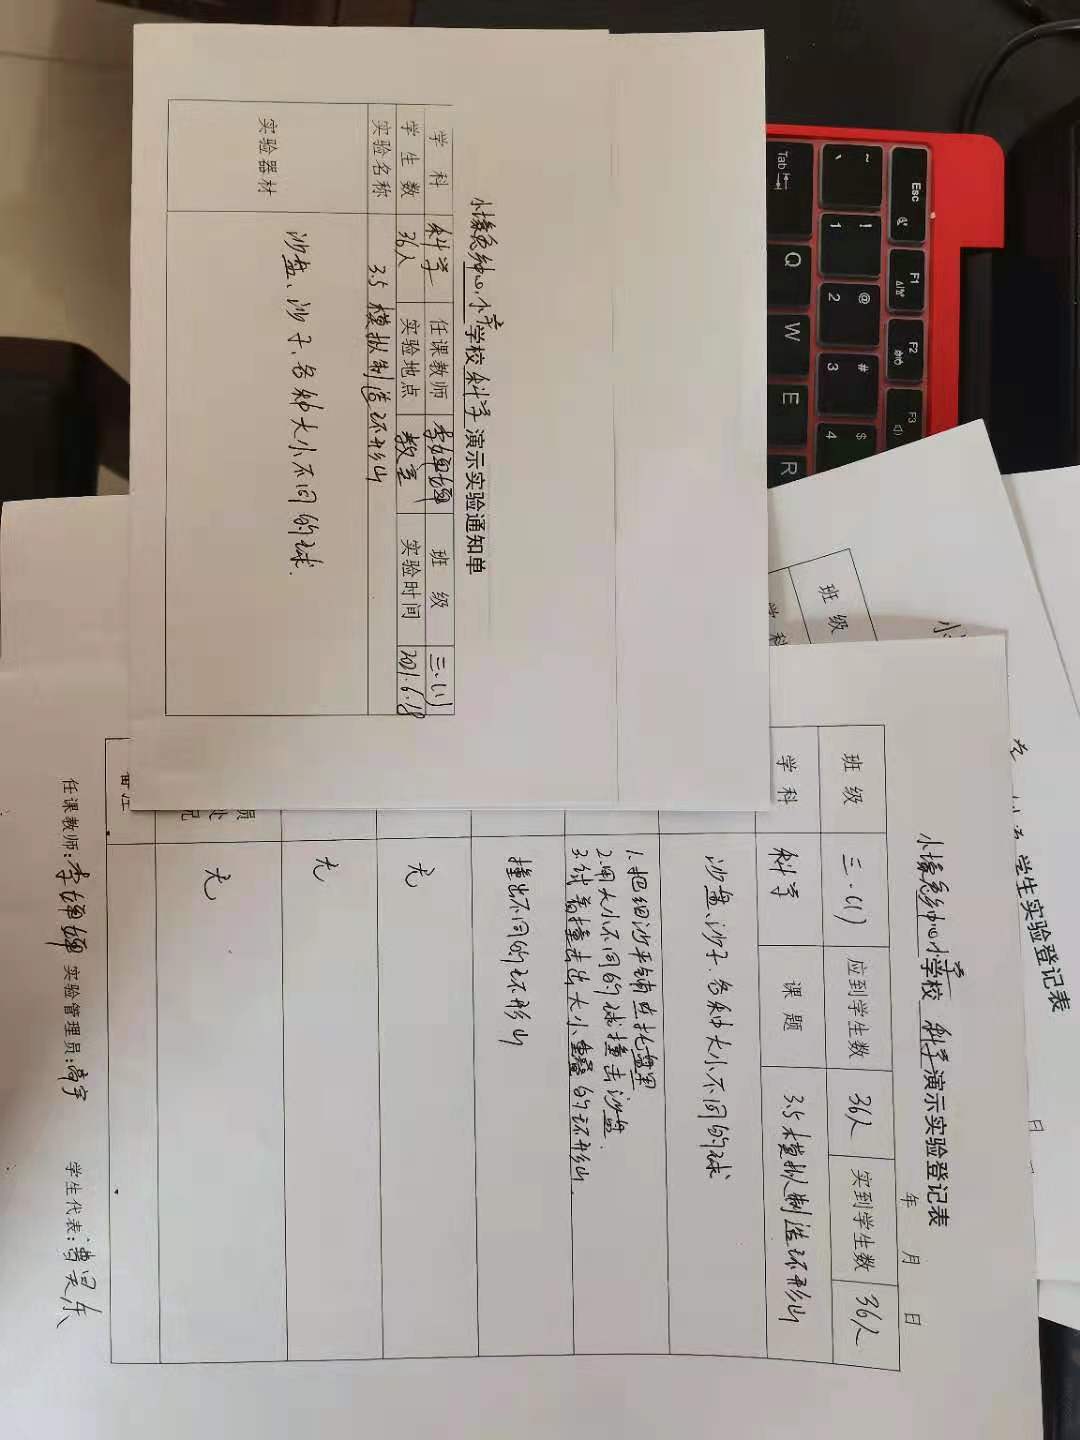 小 乡中心小学学校 科学 演示实验通知单
学 科 科学 任课教师 李婵婵 班 级 三.(1)
学 生 数 36人 实验地点 教室 实验时间 2021.6.18
实验名称 3.5 模拟制造环形山
实验器材 沙盘、沙子、各种大小不同的球.
小 乡中心小学学校 科学 演示实验登记表
年 月 日
班 级 三.(1) 应到学生数 36人 实到学生数 36人
学 科 科学 课 题 3.5 模拟制造环形山
沙盘、沙子、各种大小不同的球
1.把细沙平铺在托盘里
2.用大小不同的球撞击沙盘.
3.试着撞击出大小 的环形山.
撞出不同的环形山
无
无
员
处
无
任课教师:李婵婵 实验管理员:高宇 学生代表:曹昊乐
班 级
学 科
学生实验登记表
日
Esc
F1
F2
F3
~
!
1
@
2
#
3
$
4
Tab
Q
W
E
R